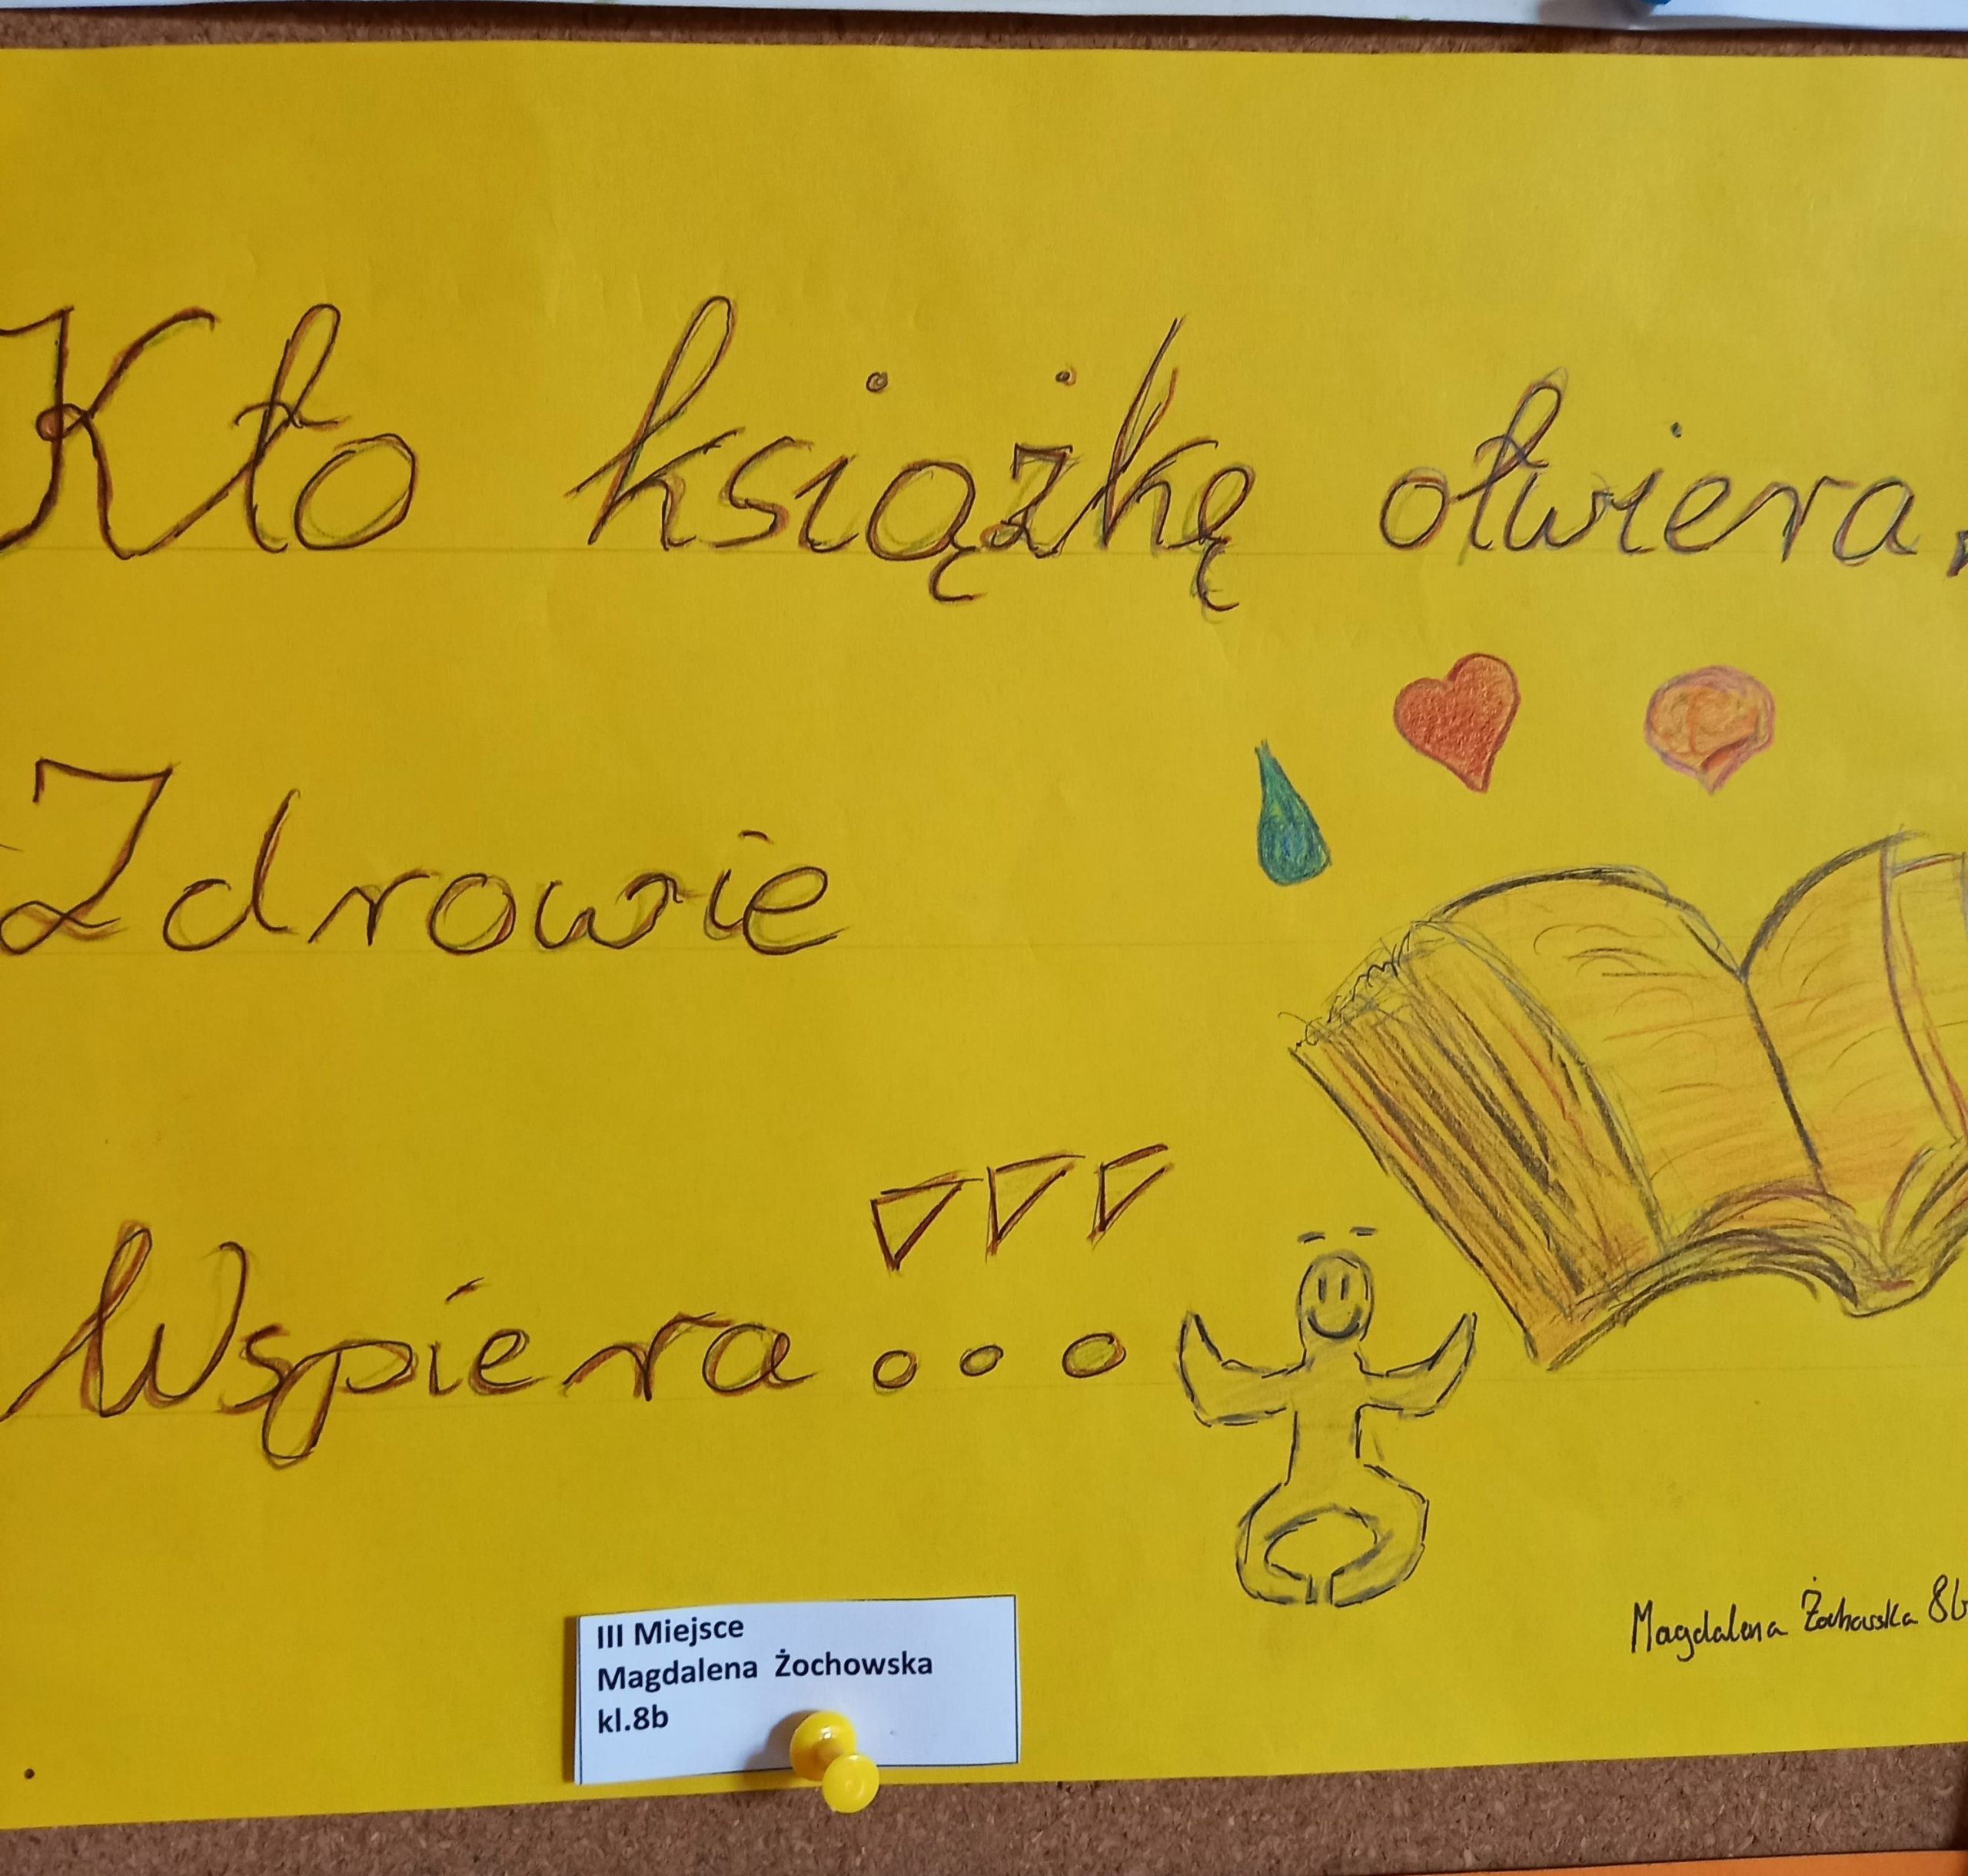 Kto książkę otwiera,
Zdrowie
Wspiera...
Magdalena Żochowska 8b
III Miejsce
Magdalena Żochowska
kl.8b